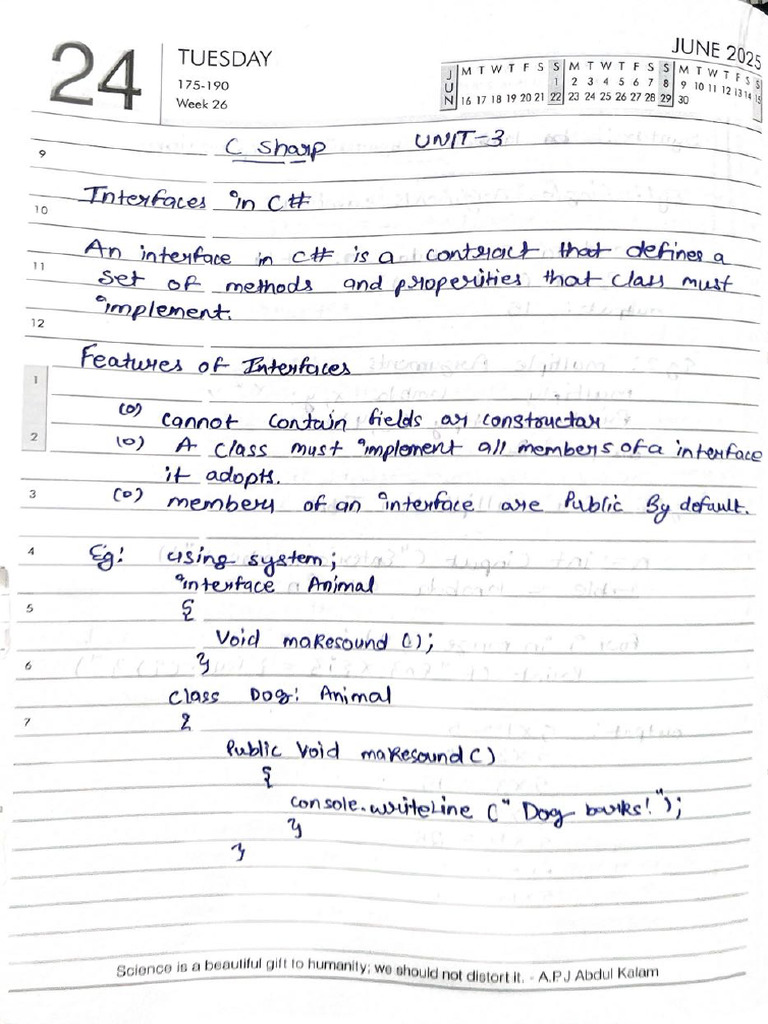 24
TUESDAY
175-190
Week 26
JUNE 2025
JUN
M T W T F S S M T W T F S S M T W T F S S
1 2 3 4 5 6 7 8 9 10 11 12 13 14 15
16 17 18 19 20 21 22 23 24 25 26 27 28 29 30
9
C Sharp UNIT-3
Interfaces in C#
10
An interface in C# is a contract that defines a
11
set of methods and properities that class must
implement.
12
Features of Interfaces
1
(o) cannot contain fields or constructor
2
(o) A class must implement all members of a interface
it adopts.
3
(o) members of an interface are Public By default.
4
Eg: using system;
interface Animal
5
{
Void makesound ();
6
}
class Dog: Animal
7
{
Public Void makesound ()
{
console.writeLine (" Dog barks!");
}
}
Science is a beautiful gift to humanity; we should not distort it. - A.P.J Abdul Kalam